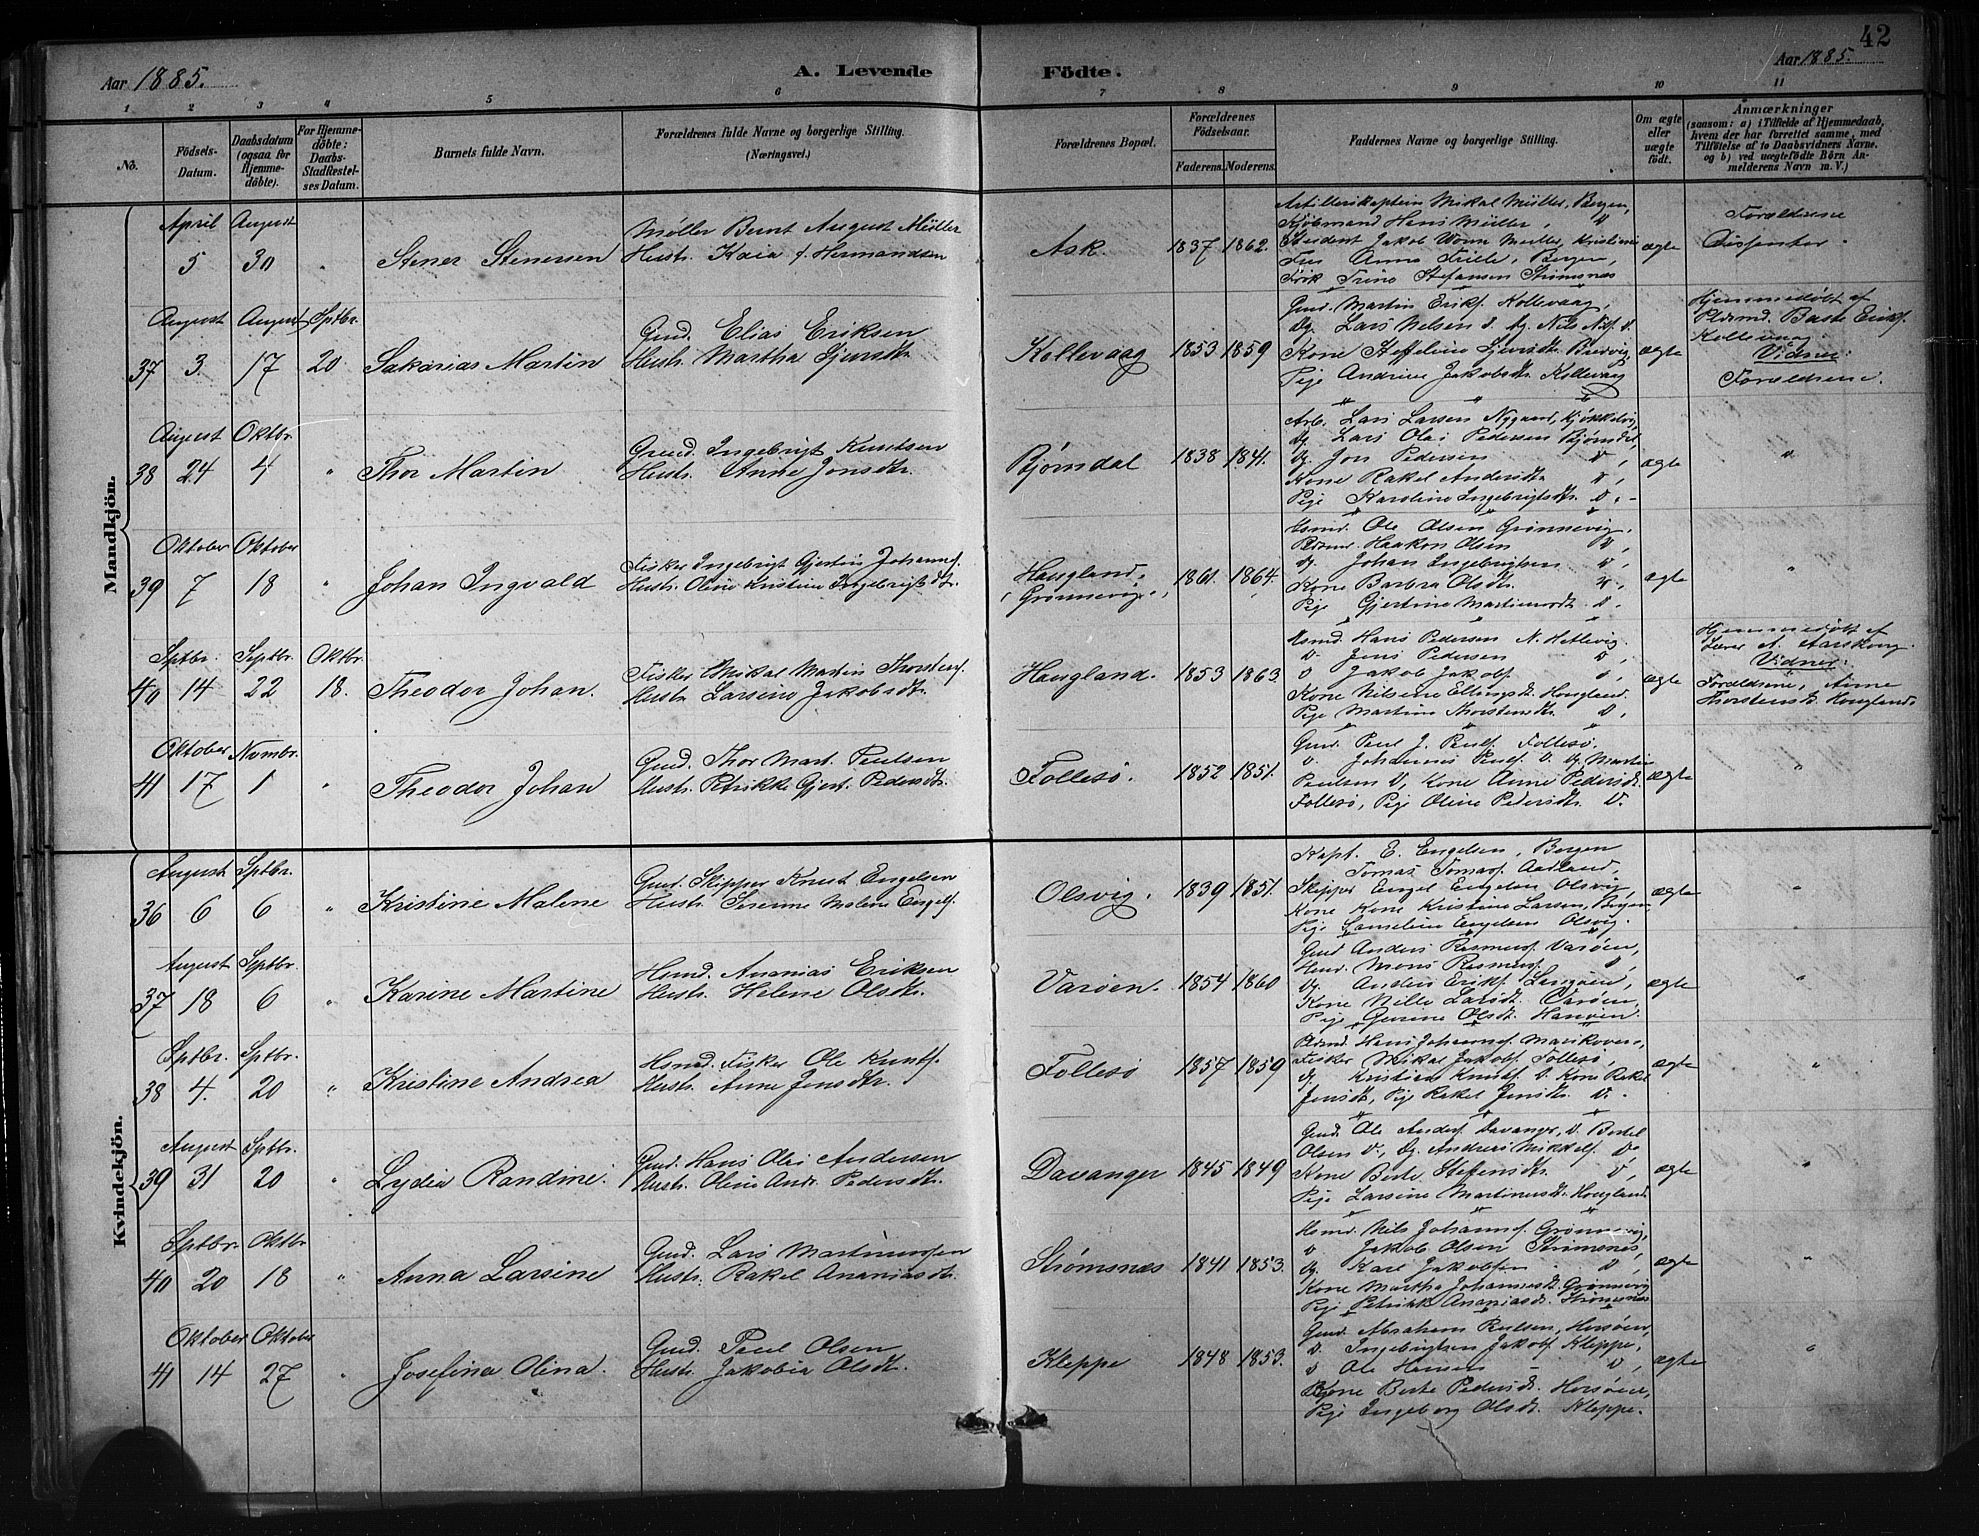 42
Aar 1885.
A. Levende Födte.
Aar 1885.
1 2 3 4 5 6 7 8 9 10 11
No.
Födsels-Datum.
Daabsdatum (ogsaa for Hjemme-döbte).
For Hjemme-döbte: Daabs-Stadfæstel-ses Datum.
Barnets fulde Navn.
Forældrenes fulde Navne og borgerlige Stilling. (Næringsvei.)
Forældrenes Bopæl.
Forældrenes Födselsaar.
Faderens. Moderens.
Faddernes Navne og borgerlige Stilling.
Om ægte eller uægte født.
Anmærkninger
(saasom: a) i Tilfælde af Hjemmedaab, hvem der har forrettet samme, med Tilföielse af to Daabsvidners Navne. og b) ved uægtefödte Börn An-melderens Navn m. V.)
Mandkjön.
April August
5 30 " Stener Stenersen
Møller Bernt August Müller
Hustr. Kaia f. Hermandsen
Ask. 1837 1862.
Artillerikaptein Mikal Müller, Bergen,
Kjøbmand Hans Müller, D
Student Jakob Worm Müller, Kristiania
Anna Bergen,
Frøk Trine Stefansen Strømsnæs
ægte
Forældrene
Dissenter.
August August Sptbr.
37 3. 17 20. Sakarias Martin
Gmd. Elias Eriksen
Hustr. Martha
Kollevaag 1853 1859
Gmd. Martin Eriks. Kollevaag,
Ug. Lars Nelsen D. Ug. Nils D.
Kone
Pige Andrine Jakobsdtr. Kollevaag
ægte
Hjemmedøbt af
Baste Eriks.
Kollevaag
Vidner:
Forældrene.
August Oktbr.
38 24 4 " Thor Martin
Gmd. Ingebrigt Knutsen
Hustr. Anne Jonsdtr.
Bjørndal 1838 1841.
Arb. Lars Larsen Nygaard,
Ug. Lars Olai Pedersen Bjørndal,
Ug. Jon Pedersen D,
Kone Rakel Andersdtr. D,
Pige Karoline Ingebrigtsdtr. D.
ægte "
Oktober Oktober
39 7 18 " Johan Ingvald
Fisker Ingebrigt Gjertin Johanns.
Hustr. Oline Kristine Ingebrigtsdtr.
Haugland, (Grønnevig.) 1861. 1864.
Hsmd. Ole Olsen Grønnevig,
Haakon Olsen D,
Ug. Johan Ingebrigtsen D,
Kone Barbra Olsdtr. D,
Pige Gjertine Martinusdtr. D.
ægte "
Sptbr. Septbr. Oktbr.
40 14 22 18. Theodor Johan.
Fisker Mikal Martin Thorstens.
Hustr. Larsine Jakobsdtr.
Haugland. 1853 1863
Hsmd. Hans Pedersen N. Hetlevig.
D. Jens Pedersen D,
D Jakob Jakobs. D,
Kone Nilsine Ellingsdt. Hougland,
Pige Martine Thorstensdtr. D,
ægte
Hjemmedøbt af
Lærer A. Aarskoug.
Vidner:
Forældrene, Anne
Thorstensdt. Hougland.
Oktober Novmbr.
41 17 1 " Theodor Johan
Gmd. Thor Mart. Paulsen
Hustr. Petrikke Gjert. Pedersdtr.
Follesø. 1852 1851.
Gmd. Paul J. Pauls. Follesø.
D. Johannes Pauls. D. Ug. Martin
Paulsen D, Kone Anne Pedersdtr.
Follesø, Pige Oline Pedersdtr. D.
ægte "
Kvindekjön.
August Sptbr.
36 6 6 " Kristine Malene
Gmd. Skipper Knut Engelsen
Hustr. Serenne Malene Engels.
Olsvig. 1839 1851.
Kapt. E. Engelsen, Bergen
Tomas Tomas. Aadland,
Skipper Engel Engelsen Olsvig,
Kone Kone Kristine Larsen, Bergen,
Pige Engelsen Olsvig.
ægte "
August Sptbr.
37 18 6 " Karine Martine
Hsmd. Ananias Eriksen
Hustr. Helene Olsdtr.
Varøen. 1854 1860
Gmd Anders Rasmus. Varøen,
Hsmd. Mons Rasmus. D,
Ug. Anders Eriks. Langøen,
Kone Nille Larsdt. Varøen,
Pige Gurine Olsdt. Hanøen.
ægte "
Sptbr. Sptbr.
38 4. 20 " Kristine Andrea
Hsmd. Fisker Ole Knuts.
Hustr. Anne Jensdtr.
Follesø 1857 1859
Hans Johannes.
Fisker Mikal Jakobs. Follesø,
Ug. Kristian Knuts. D. Kone Rakel
Jensdt, Pige Rakel Jensdtr. D.
ægte "
August Sptbr.
39 31 20 " Lydia Randine.
Gmd. Hans Olai Andersen
Hustr. Oline Andr. Pedersdtr.
Davanger 1845 1849
Gmd. Ole Anders. Davanger, D. Bertel
Olsen D., Ug. Andreas Mikkels. D
Kone Berte Steffensdtr. D,
Pige Larsine Martinusdt. Hougland
ægte "
Sptbr. Oktbr.
40 20 18 " Anna Larsine
Gmd. Lars Martinussen
Hustr. Rakel Ananiasdtr.
Strømsnæs 1841 1853.
Hsmd. Nils Johanns. Grønnevig,
D. Jakob Olsen Strømsnæs,
Ug. Karl Jakobsen D,
Kone Martha Johannesdt. Grønnevig
Pige Petrikke Ananiasdt. Strømsnæs
ægte "
Oktober Oktober
41 14 27 " Josefina Olina.
Gmd. Paul Olsen
Hustr. Jakobia Olsdtr.
Kleppe 1848 1853.
Gmd. Abraham Paulsen, Horsøen,
D. Ingebrigtsen Jakob Kleppe,
D Ole Hansen D,
Kone Berte Pedersdt. Horsøen,
Pige Ingeborg Olsdt. Kleppe.
ægte "